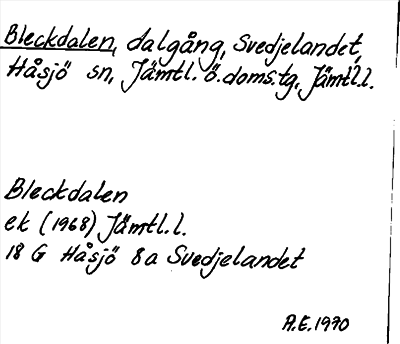 Bleckdalen, dalgång, Svedjelandet,
Håsjö sn, Jämtl. Ö. doms.tg, Jämtl.l.
Bleckdalen
ek (1968) Jämtl.l.
18 G Håsjö 8a Svedjelandet
A.E. 1970